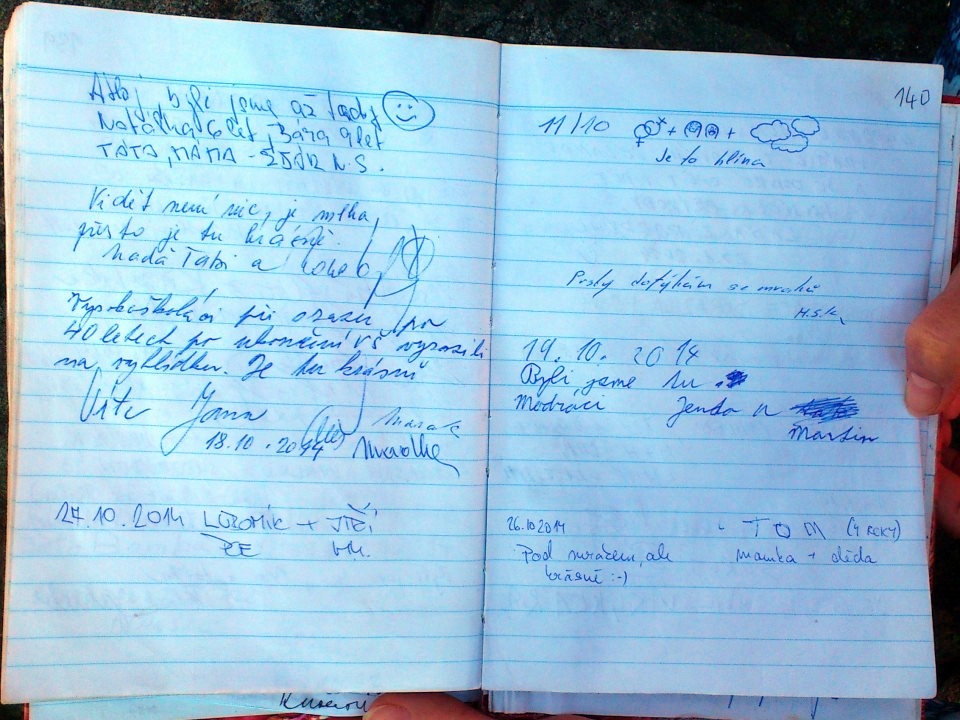 Ahoj, byli jsme až tady
Natálka 6 let, Bára 9 let
TÁTA, MÁMA - ŽĎÁR N. S.
Vidět není nic, je mlha,
přesto je tu krásně.
Naďa a
Vysokoškoláci při srazu po
40 letech po ukončení VŠ vyrazili
na vyhlídku. Je tu krásně
Jana
18.10.2014
27.10.2014 LUBOMÍR + JIŘÍ
140
11/10 + +
Je to hlína
Prsty dotýkám se mraků
H.S.K.
19.10.2014
Byli jsme tu
Modráci Jenda a
Martin
26.10.2014 TOM (4 ROKY)
Pod mrakem, ale mamka + děda
krásně :-)